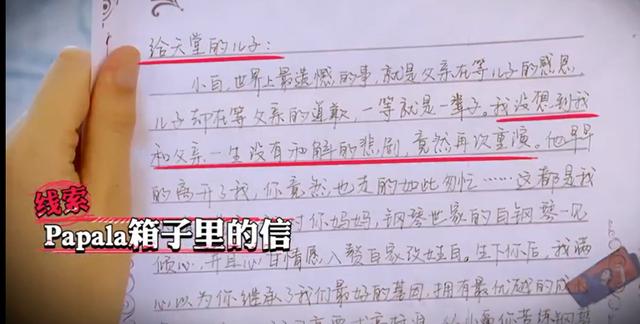 给天堂的儿子：
小白，世界上最遗憾的事，就是父亲在等儿子的感恩，
儿子却在等父亲的道歉，一等就是一辈子。我没想到我
和父亲一生没有和解的悲剧，竟然再次重演。他早早
的离开了我，你竟然也走的如此匆忙……这都是我
线索
Papala箱子里的信
对你妈妈，钢琴世家的白钢琴一见
倾心，并且心甘情愿入赘白家改姓白。生下你后，我满
心以为你继承了我们最好的基因，拥有最优越的成